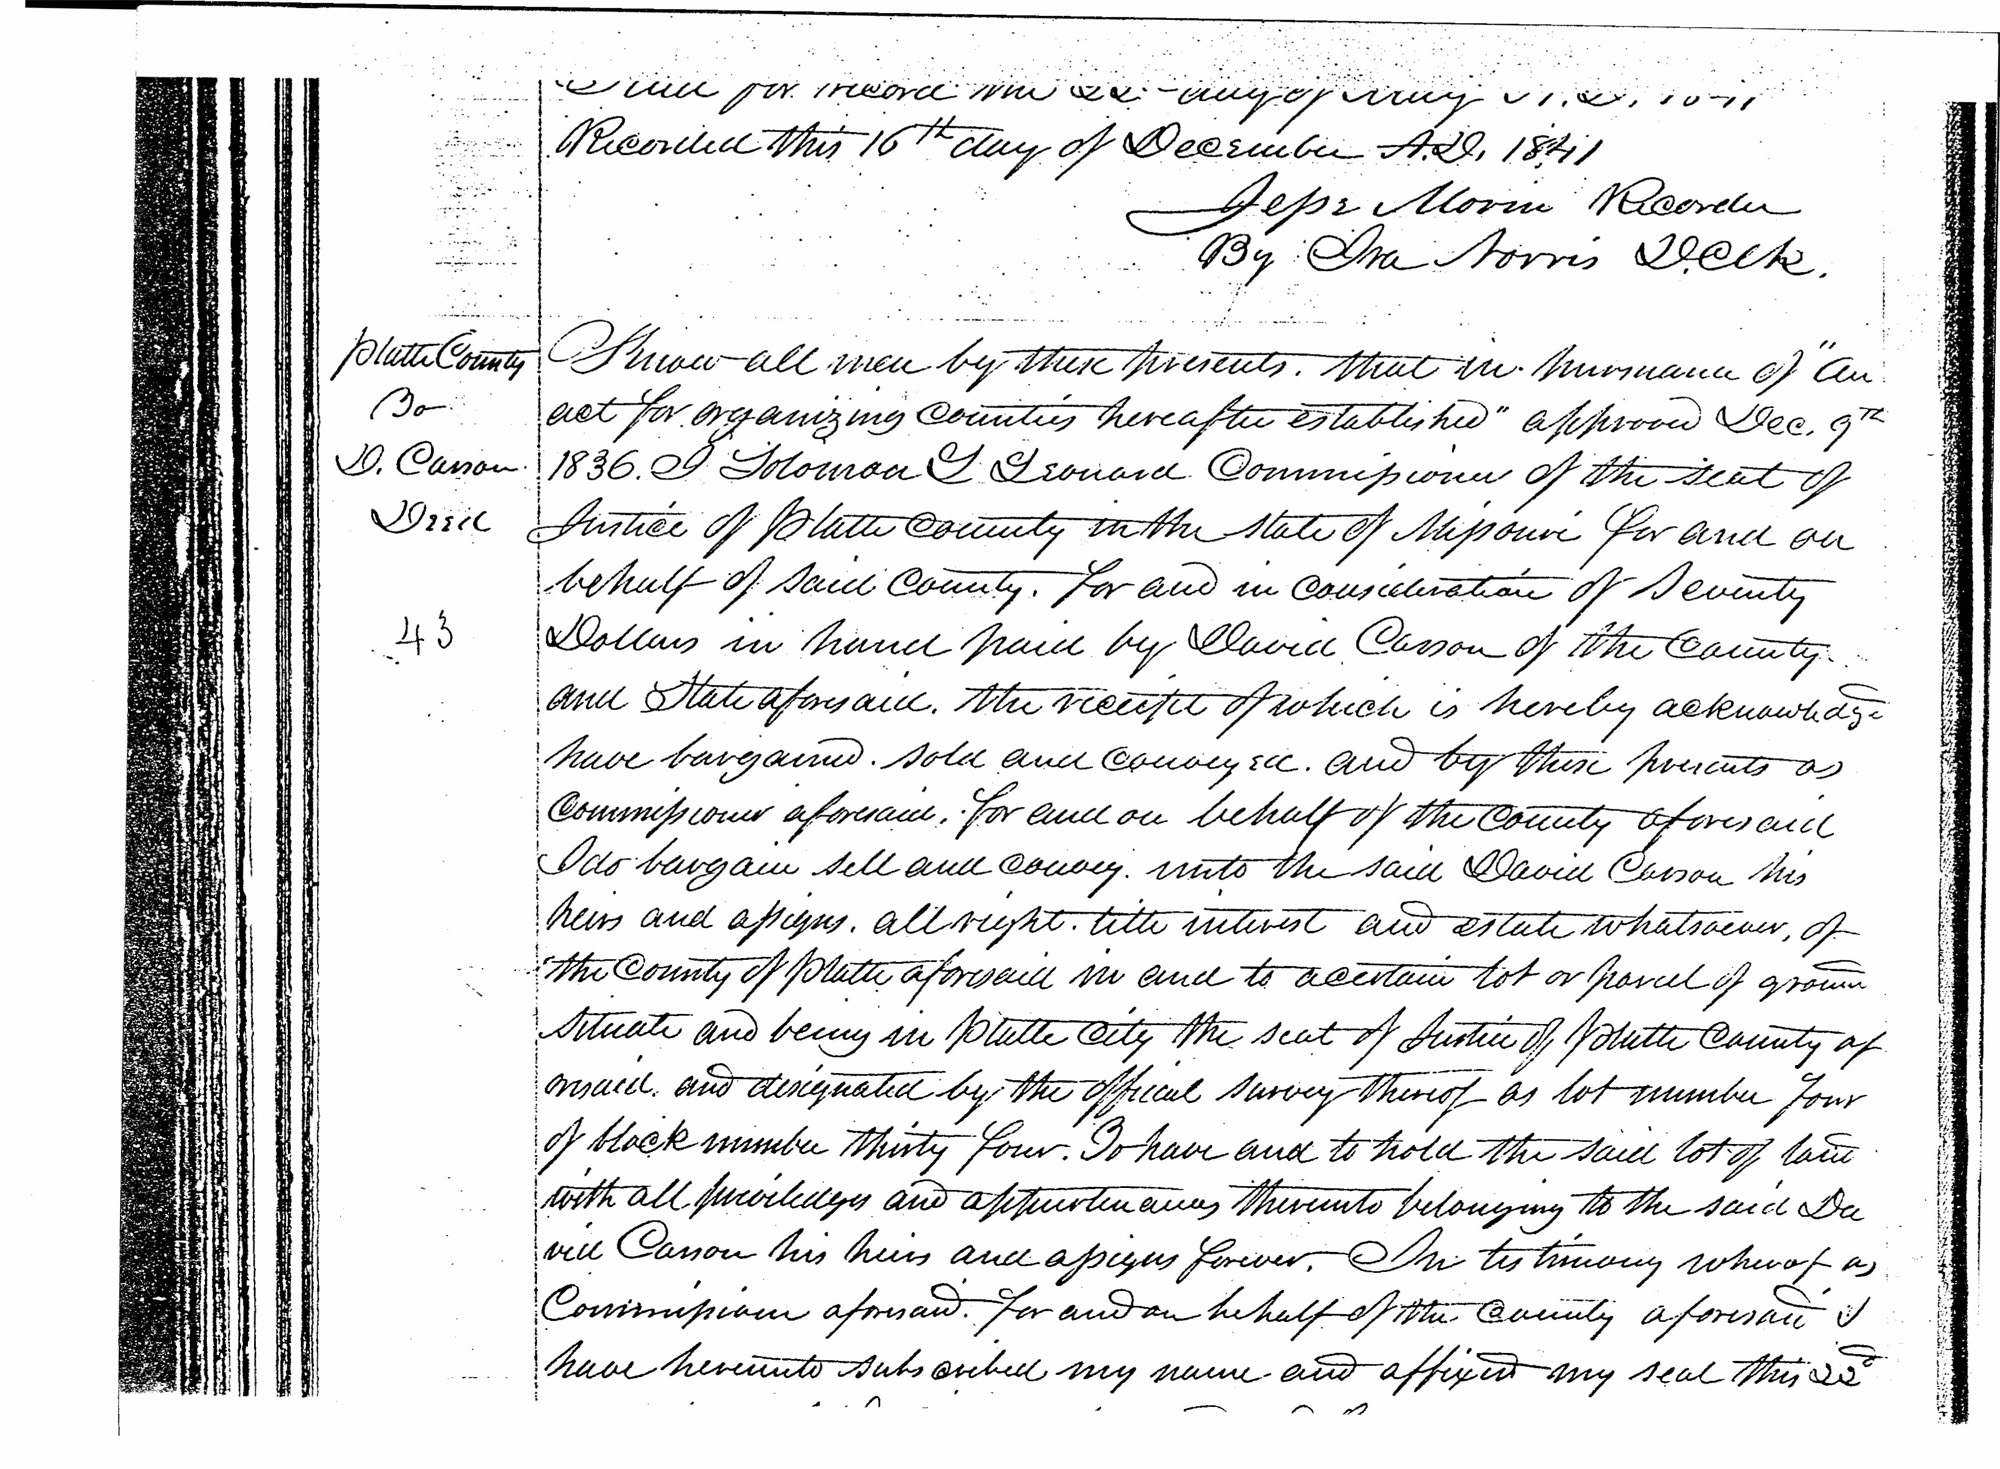 Filed for record the 22 day of May A.D. 1841
Recorded this 16th day of December A.D. 1841
Jesse Morin Recorder
By Ira Norris D. Clk.
Platte County
To
D. Carson
Deed
43
Know all men by these presents. that in pursuance of "An
act for organizing counties hereafter established" approved Dec. 9th
1836. I Solomon L Leonard Commissioner of the seat of
Justice of Platte County in the State of Missouri for and on
behalf of said County. for and in consideration of Seventy
Dollars in hand paid by David Carson of the County
and State aforesaid. the receipt of which is hereby acknowledged
have bargained. sold and conveyed. and by these presents as
Commissioner aforesaid. for and on behalf of the County aforesaid
I do bargain sell and convey. unto the said David Carson his
heirs and assigns. all right. title interest and estate whatsoever, of
the County of Platte aforesaid in and to a certain lot or parcel of ground
situate and being in Platte City the seat of Justice of Platte County af
oresaid. and designated by the official survey thereof as lot number four
of block number thirty four. To have and to hold the said lot of land
with all priviledges and appurtenances thereunto belonging to the said Da
vid Carson his heirs and assigns forever. In testimony whereof as
Commissioner aforesaid. for and on behalf of the County aforesaid I
have hereunto subscribed my name and affixed my seal this 22d